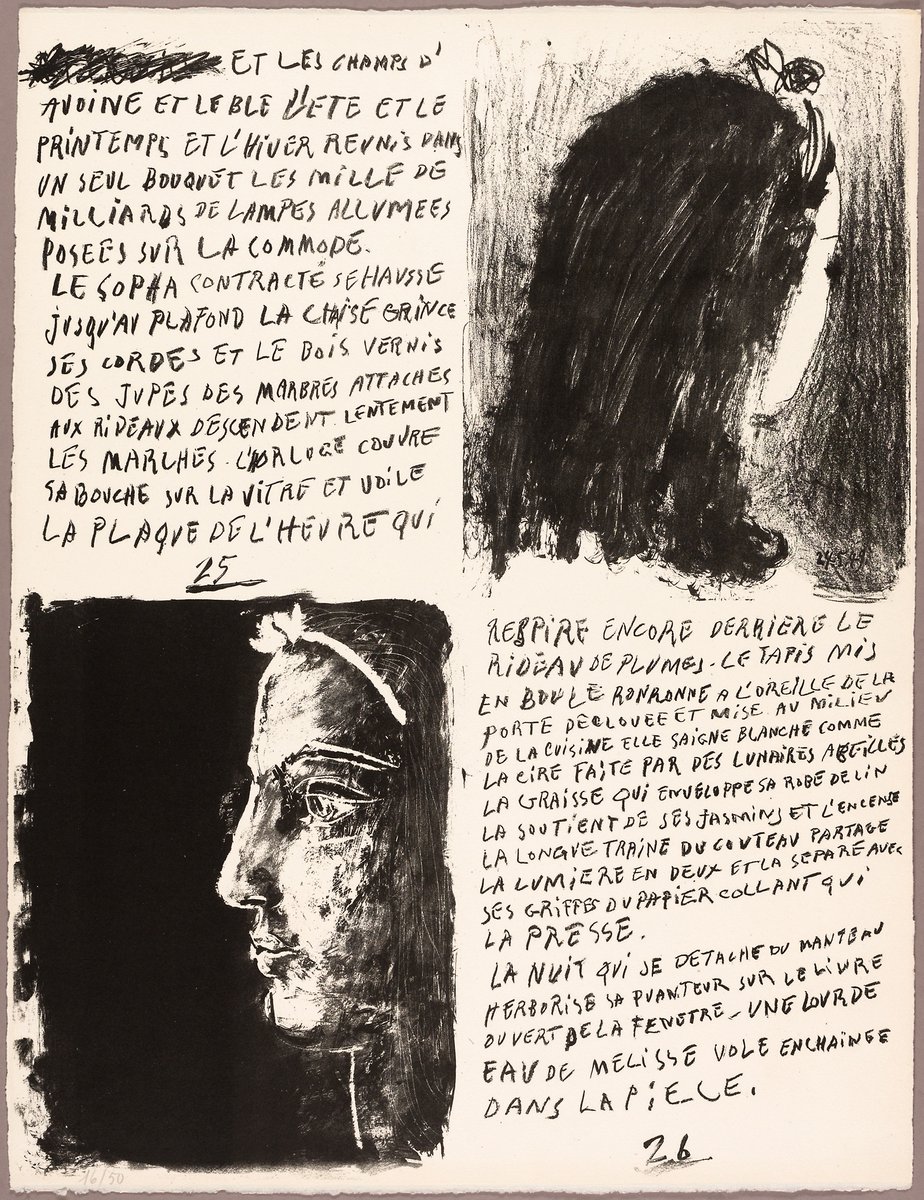 ET LES CHAMPS D'
AVOINE ET LE BLE L'ETE ET LE
PRINTEMPS ET L'HIVER REUNIS DANS
UN SEUL BOUQUET LES MILLE DE
MILLIARDS DE LAMPES ALLUMEES
POSEES SUR LA COMMODE.
LE SOPHA CONTRACTÉ SE HAUSSE
JUSQU'AU PLAFOND LA CHAISE GRINCE
SES CORDES ET LE BOIS VERNIS
DES JUPES DES MARBRES ATTACHES
AUX RIDEAUX DESCENDENT LENTEMENT
LES MARCHES. L'ORLOGE COUVRE
SA BOUCHE SUR LA VITRE ET VOILE
LA PLAQUE DE L'HEURE QUI
25
RESPIRE ENCORE DERRIERE LE
RIDEAU DE PLUMES. LE TAPIS MIS
EN BOULE RONRONNE A L'OREILLE DE LA
PORTE DECLOUEE ET MISE AU MILIEU
DE LA CUISINE ELLE SAIGNE BLANCHE COMME
LA CIRE FAITE PAR DES LUNAIRES ABEILLES
LA GRAISSE QUI ENVELOPPE SA ROBE DE LIN
LA SOUTIENT DE SES JASMINS ET L'ENCENSE
LA LONGUE TRAINE DU COUTEAU PARTAGE
LA LUMIERE EN DEUX ET LA SEPARE AVEC
SES GRIFFES DU PAPIER COLLANT QUI
LA PRESSE.
LA NUIT QUI SE DETACHE DU MANTEAU
HERBORISE SA PUANTEUR SUR LE LIVRE
OUVERT DE LA FENETRE - UNE LOURDE
EAU DE MELISSE VOLE ENCHAINEE
DANS LA PIECE.
26
16/50